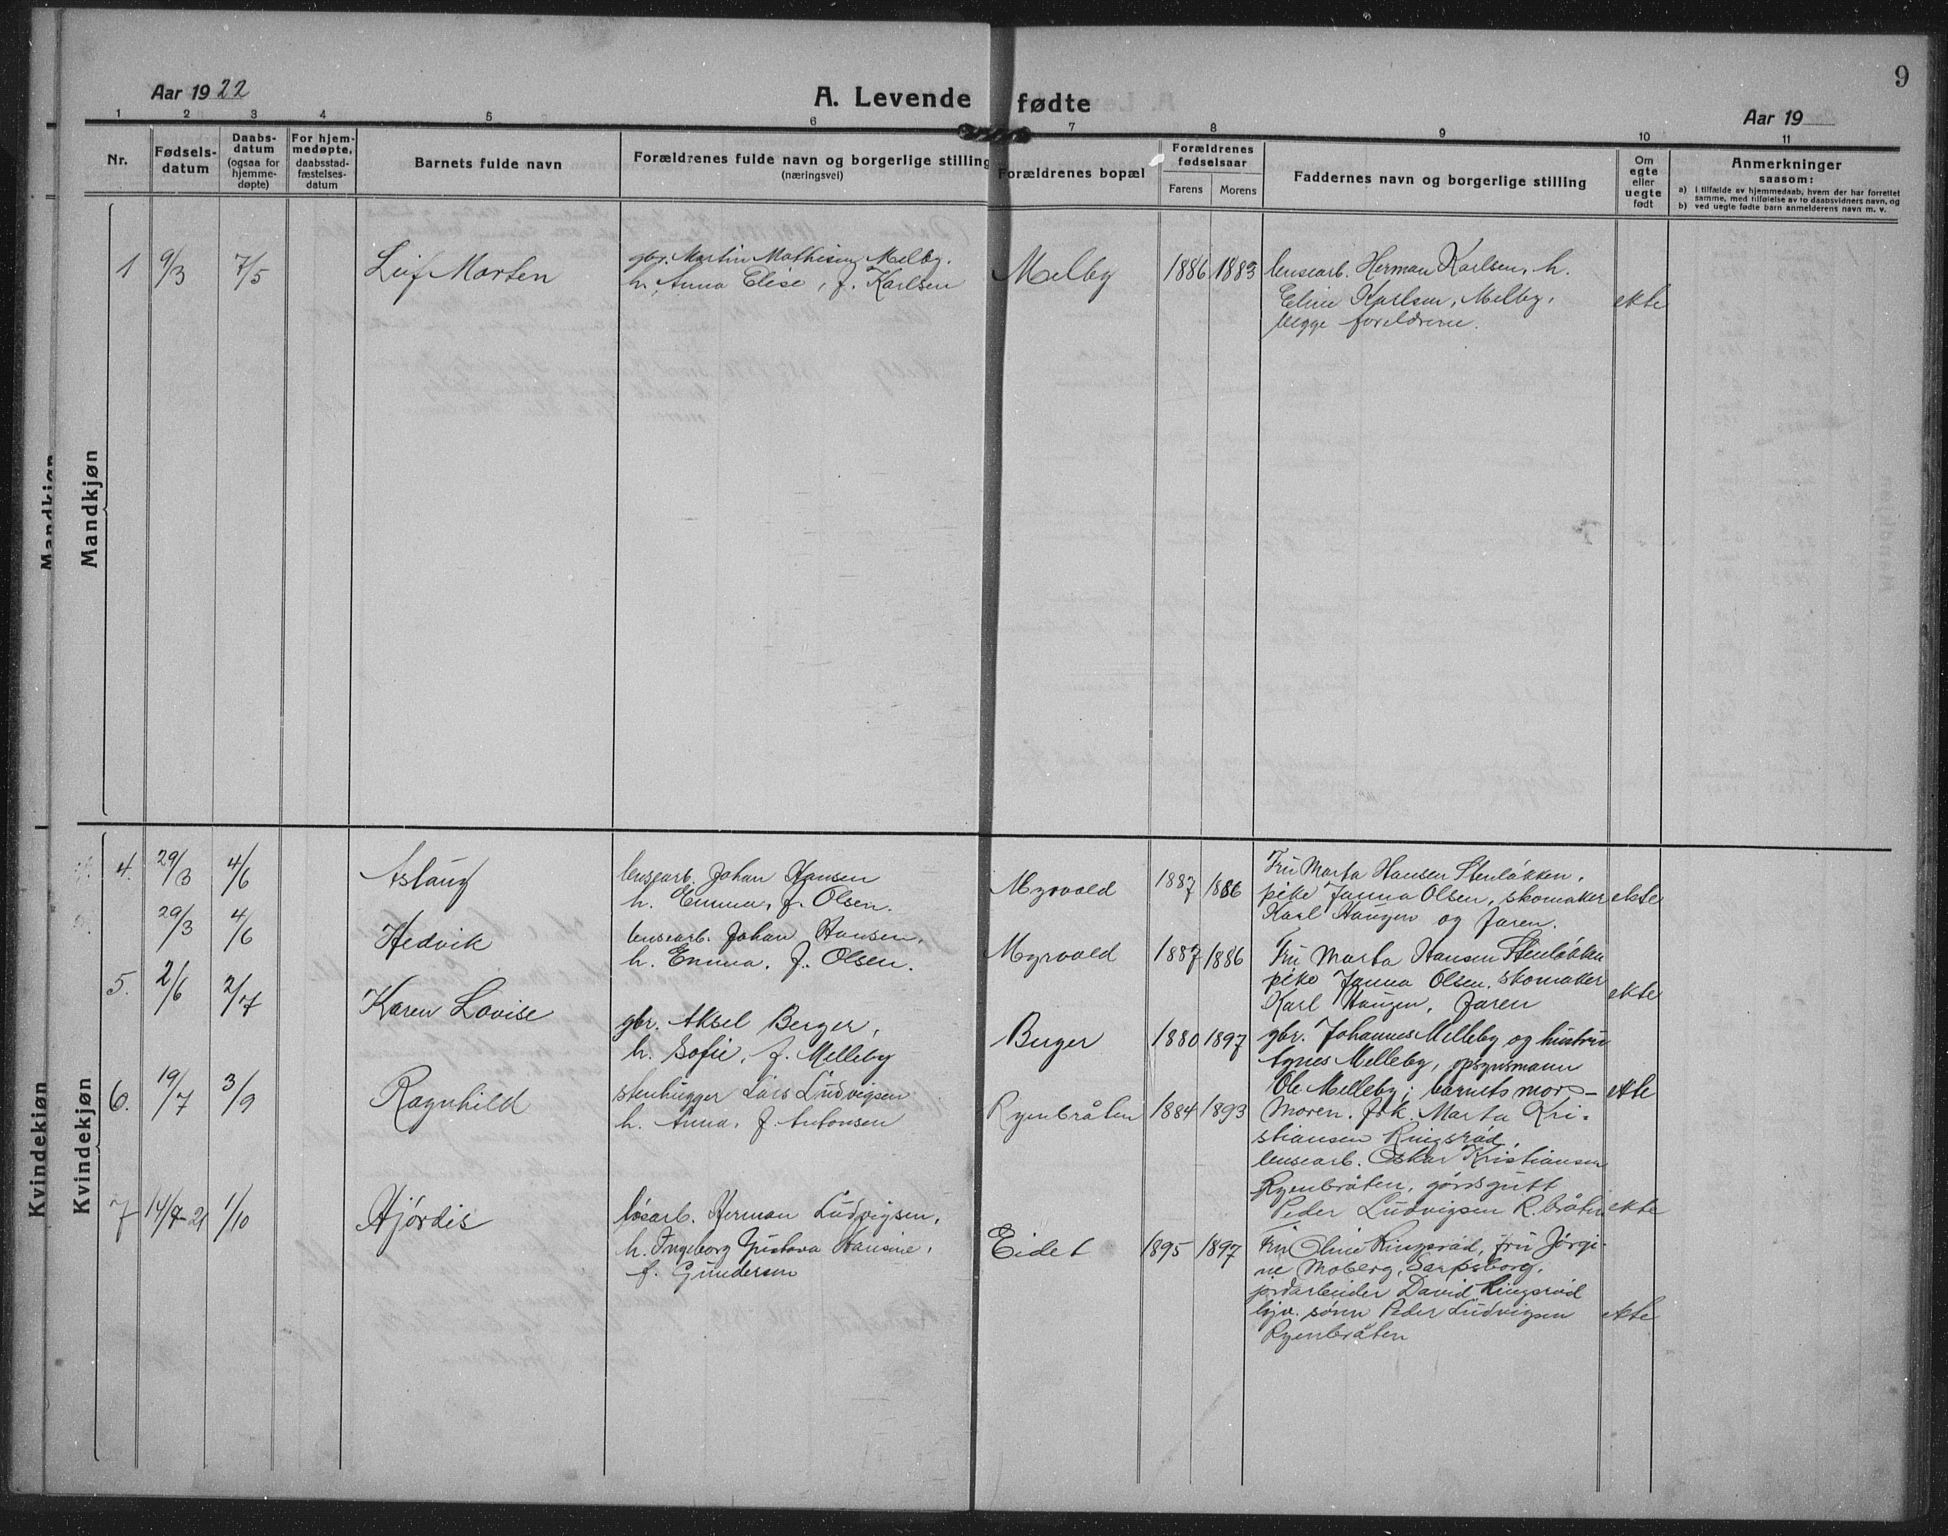 9
Aar 1922
A. Levende fødte
Aar 19
1 2 3 4 5 6 7 8 9 10 11
Nr.
Fødsels-
datum
Daabs-
datum
(ogsaa for
hjemme-
døpte)
For hjem-
medøpte,
daabsstad-
fæstelses-
datum
Barnets fulde navn
Forældrenes fulde navn og borgerlige stilling
(næringsvei)
Forældrenes bopæl
Forældrenes
fødselsaar
Farens Morens
Faddernes navn og borgerlige stilling
Om
egte
eller
uegte
født
Anmerkninger
saasom:
a) i tilfælde av hjemmedaab, hvem der har forrettet
samme, med tilføielse av to daabsvidners navn, og
b) ved uegte fødte barn anmelderens navn m. v.
Mandkjøn
Mandkjøn
1 9/3 7/5 Leif Morten
gbr. Martin Mathisen, Melby.
h. Anna Elise, f. Karlsen
Melby 1886 1883
lensearb. Herman Karlsen, h.
Eline Karlsen, Melby,
begge foreldrene.
ekte
Kvindekjøn
Kvindekjøn
4. 29/3 4/6 Aslaug
lensearb. Johan Hansen
h. Emma, f. Olsen.
Myrvold 1887 1886
Fru Marta Hansen Stenløkken,
pike Janna Olsen, skomaker
Karl Haugen og Jaren.
ekte
29/3 4/6 Hedvik
lensearb. Johan Hansen,
h. Emma, f. Olsen.
Myrvold 1887 1886
Fru Marta Hansen Stenløkken
pike Janna Olsen, skomaker
Karl Haugen, Jaren
ekte
5. 2/6 2/7 Karen Lovise
gbr. Aksel Berger,
h. Sofie, f. Melleby
Berger 1880 1897
gbr. Johannes Melleby og hustru
Agnes Melleby, opsynsmann
Ole Melleby; barnets mor -
ekte
6. 19/7 3/9 Ragnhild
stenhugger Lars Ludvigsen
h. Anna, f. Antonsen
Ryenbråten 1884 1893
Moren. frk. Marta Kri-
stiansen Ringsrød,
lensearb. Oskar Kristiansen
Ryenbråten, gårdsgutt
Peder Ludvigsen R.bråten
ekte
7 14/9-21 1/10 Hjørdis
løsarb. Herman Ludvigsen,
h. Ingeborg Gustava Hansine,
f. Gundersen
Eidet 1895 1897
Fru Oline Ringsrød, fru Jørgi-
ne Moberg, Sarpsborg,
jordarbeider David Ringsrød
hjv. sønn Peder Ludvigsen
Ryenbråten
ekte